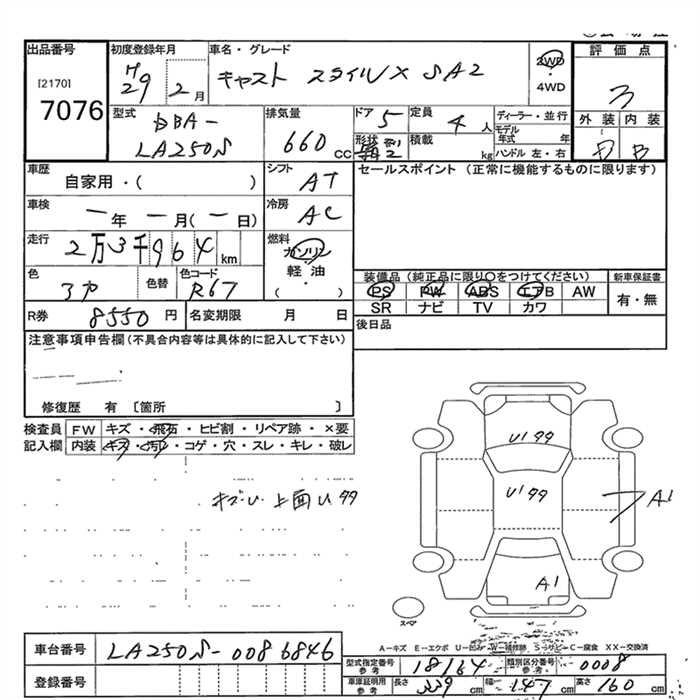 出品番号 初度登録年月 車名・グレード 評価点
[2170]
7076
H29 2月 キャスト スタイルX SA2 2WD
4WD
3
外装 内装
B
型式 DBA-
LA250S
排気量 660 cc
ドア 5 定員 4人
形状 積載 kg
ディーラー・並行
モデル年式 年
ハンドル 左・右
車歴 自家用・( )
シフト AT
セールスポイント (正常に機能するものに限ります)
車検 一年 一月(一日)
冷房 AC
走行 2万3千964km
燃料 ガソリン・軽油・( )
色 色替 色コード R67
装備品(純正品に限り○をつけてください) 新車保証書
PS PW ABS エアB AW 有・無
SR ナビ TV カワ
R券 8550円 名変期限 月 日
後日品
注意事項申告欄(不具合内容等は具体的に記入して下さい)
修復歴 有 〔箇所 〕
検査員 FW キズ・飛石・ヒビ割・リペア跡・×要
記入欄 内装 キズ・汚レ・コゲ・穴・スレ・キレ・破レ
上面U99
U199
U199
A1
A1
スペア
A-キズ E-エクボ U-凹み W-補修跡 S-サビ C-腐食 XX-交換済
車台番号 LA250S-0086846
型式指定番号参考 18164 類別区分番号参考 0008
登録番号
車庫証明用参考 長さ 339cm 幅 147cm 高さ 160cm